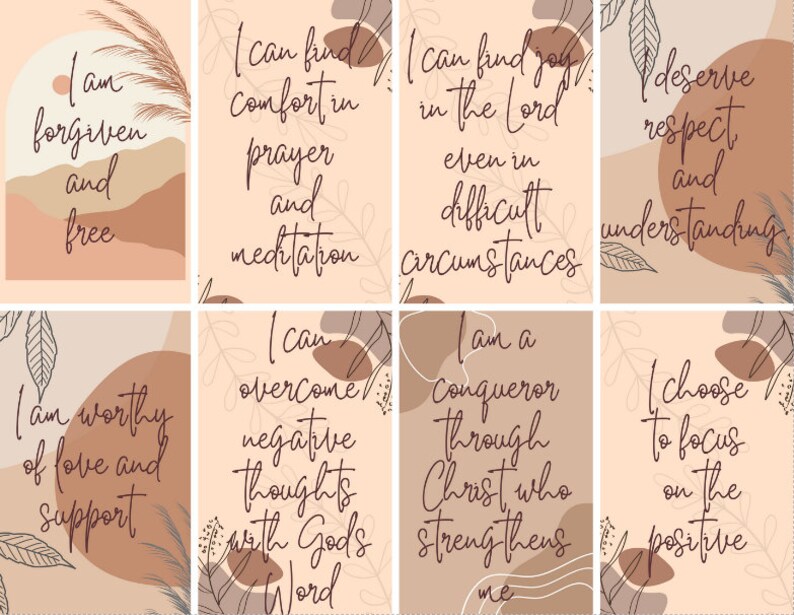 I am
forgiven
and
free
I can find
comfort in
prayer
and
meditation
I can find joy
in the Lord
even in
difficult
circumstances
I deserve
respect
and
understanding
I am worthy
of love and
support
I can
overcome
negative
thoughts
with Gods
Word
I am a
conqueror
through
Christ who
strengthens
me
I choose
to focus
on the
positive